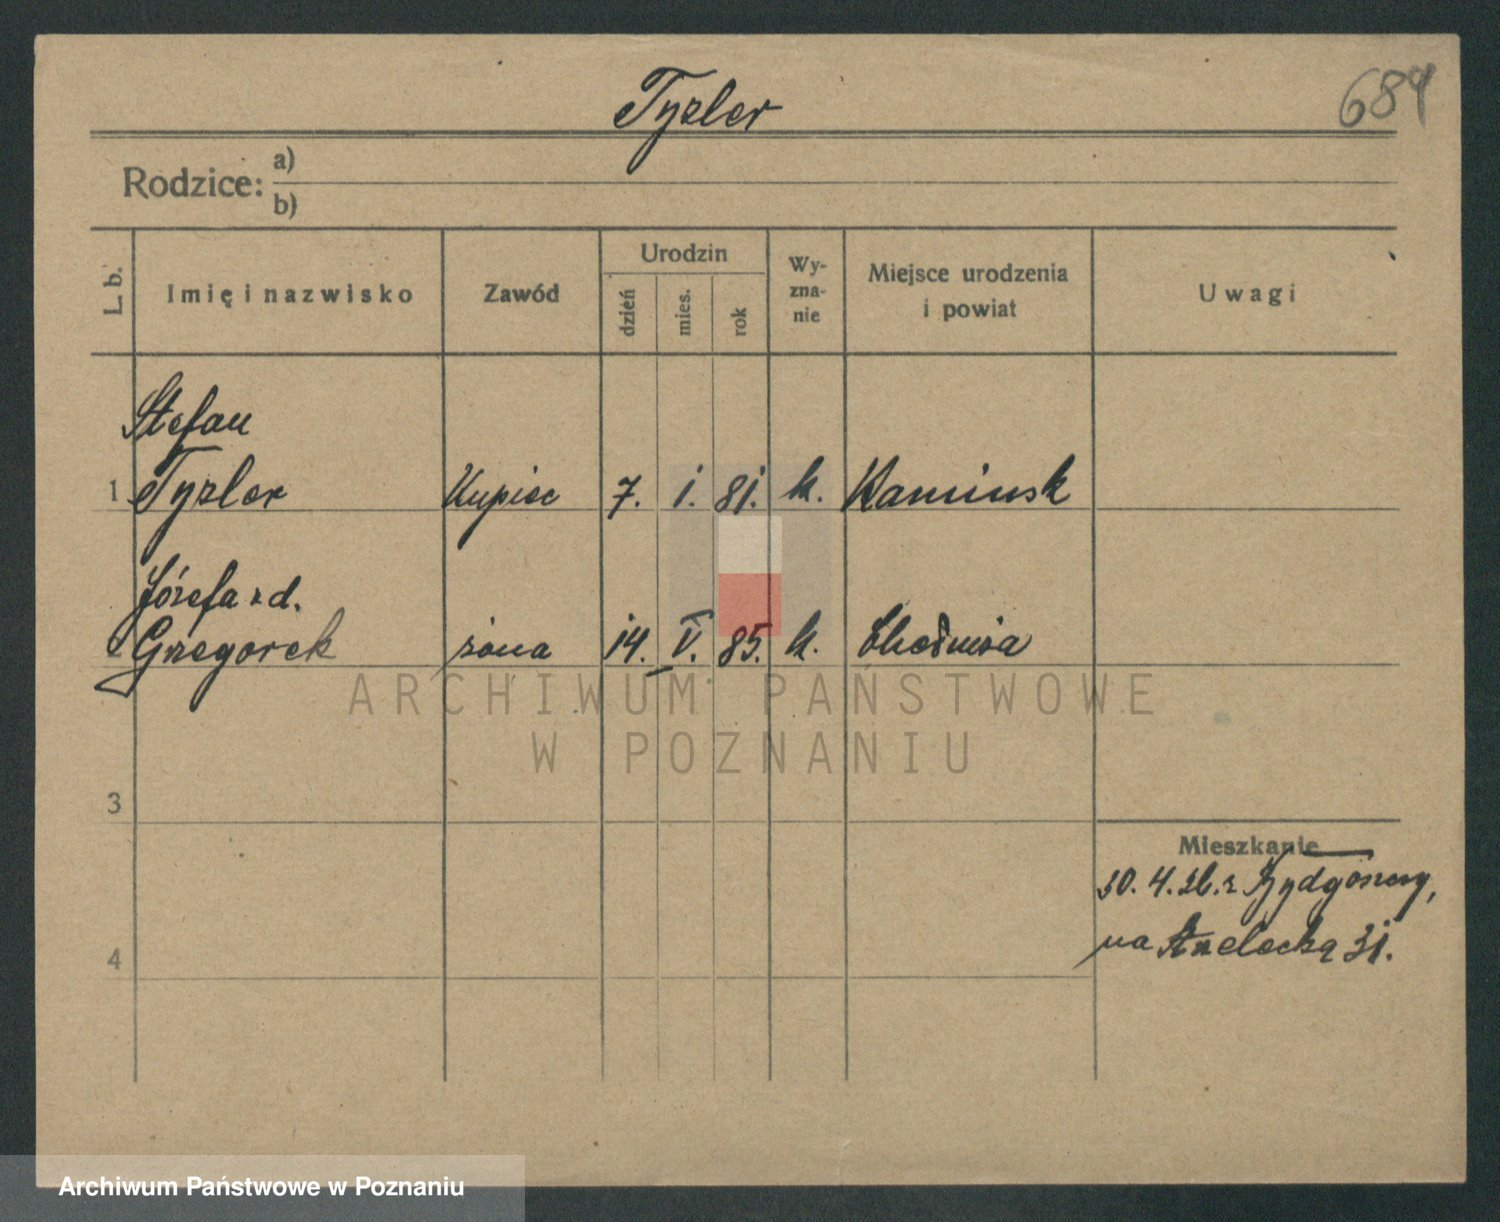 Tyzler
684
Rodzice: a)
b)
L. b.
Imię i nazwisko
Zawód
Urodzin
dzień
mies.
rok
Wy-
zna-
nie
Miejsce urodzenia
i powiat
Uwagi
Stefan
1 Tyzler Kupiec 7. 1. 81. k. Kaminsk
Józefa z d.
2 Grzegorek żona 14. V. 85. k.
ARCHIWUM PAŃSTWOWE
W POZNANIU
3
Mieszkanie
30. 4. 26. z Bydgoszczy,
na Strzelecką 31.
4
Archiwum Państwowe w Poznaniu